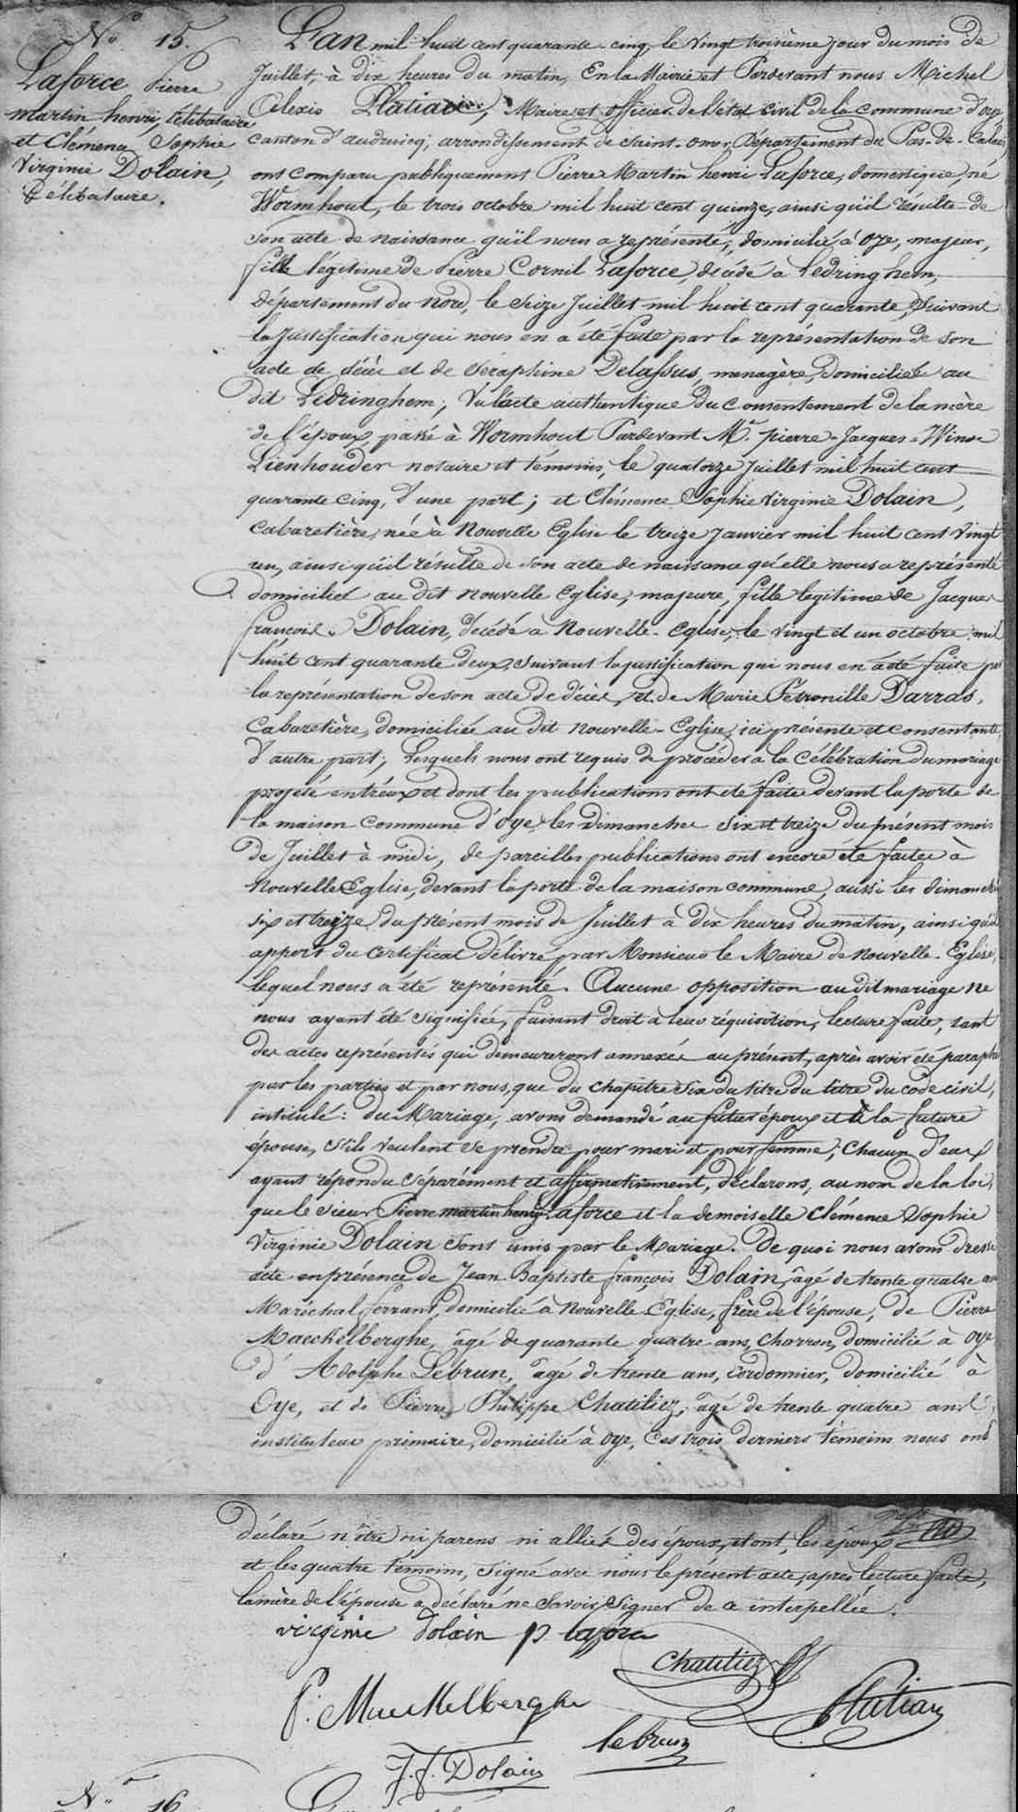 N.o 15.
Laforce Pierre
martin henri, Célibataire
et Clémence Sophie
Virginie Dolain,
Célibataire.
L'an mil huit cent quarante-cinq, le vingt troisième jour du mois de
Juillet, à dix heures du matin, En la Mairie et Pardevant nous Michel
Alexis Platiau, Maire et officier de l'état civil de la commune d'oye,
canton d'audruicq, arrondissement de saint-omer Département du Pas-de-Calais
ont comparu publiquement Pierre Martin henri Laforce, domestique, né
Wormhout, le trois octobre mil huit cent quinze, ainsi qu'il résulte de
son acte de naissance qu'il nous a représenté, domicilié à oye, majeur,
fils légitime de Pierre Cornil Laforce, décédé à Ledringhem,
département du nord, le seize Juillet mil huit cent quarante, Suivant
la Justification qui nous en a été faite par la représentation de son
acte de décès et de Séraphine Delassus, menagère, domiciliée au
dit Ledringhem; Vu l'acte authentique du Consentement de la mère
de l'époux, passé à Wormhout Pardevant M.e pierre-Jacques-Winoc
Lienhouder notaire et témoins, le quatorze Juillet mil huit cent
quarante cinq, d'une part; et Clémence Sophie Virginie Dolain,
Cabaretière, née à Nouvelle Eglise le treize Janvier mil huit cent vingt
un, ainsi qu'il résulte de son acte de naissance qu'elle nous a représenté
domiciliée au dit nouvelle Eglise, majeure, fille legitime de Jacques
françois Dolain, décédé à Nouvelle-Eglise, le vingt et un octobre mil
huit cent quarante deux, suivant la justification qui nous en a été faite par
la représentation de son acte de décès, et de Marie Pétronille Darras,
Cabaretière, domiciliée au dit nouvelle-Eglise, ici présente et consentante,
d'autre part; Lesquels nous ont requis de procéder à la Célébration du mariage
projeté entr'eux et dont les publications ont été faites devant la porte de
la maison Commune d'Oye, les dimanches six et treize du présent mois
de Juillet à midi, de pareilles publications ont encore été faites à
nouvelle Eglise, devant la porte de la maison commune, aussi les dimanches
six et treize du présent mois de Juillet à dix heures du matin, ainsi qu'il
appert du certificat délivré par Monsieur le Maire de Nouvelle-Eglise,
lequel nous a été représenté. Aucune opposition au dit mariage ne
nous ayant été signifiée, faisant droit à leur réquisition, lecture faite, tant
des actes représentés qui demeureront annexés au présent, après avoir été paraphé
par les parties et par nous, que du chapitre six du titre du titre du code civil,
intitulé: du Mariage, avons demandé au futur époux et à la future
épouse, s'ils veulent se prendre pour mari et pour femme; Chacun d'eux
ayant répondu séparément et affirmativement, déclarons, au nom de la loi,
que le sieur Pierre martin henry Laforce et la demoiselle Clémence Sophie
Virginie Dolain sont unis par le Mariage. De quoi nous avons dressé
acte en présence de Jean Baptiste françois Dolain, âgé de trente quatre ans
Maréchal ferrant, domicilié à Nouvelle Eglise, frère de l'épouse, de Pierre
Maeckelberghe, âgé de quarante quatre ans, Charron, domicilié à Oye
d'Adolphe Lebrun, âgé de trente ans, cordonnier, domicilié à
Oye, et de Pierre Philippe Chatiliez, âgé de trente quatre ans,
instituteur primaire, domicilié à Oye, Ces trois derniers témoins nous ont
déclaré n'être ni parens ni alliés des époux, et ont, les époux
et les quatre témoins, signé avec nous le présent acte, après lecture faite,
la mère de l'épouse a déclaré ne Savoir Signer de ce interpellée.
virginie dolain p laforce
Chatiliez
P. Maeckelberghe
Platiau
lebrun
J. f. Dolain
N.o 16